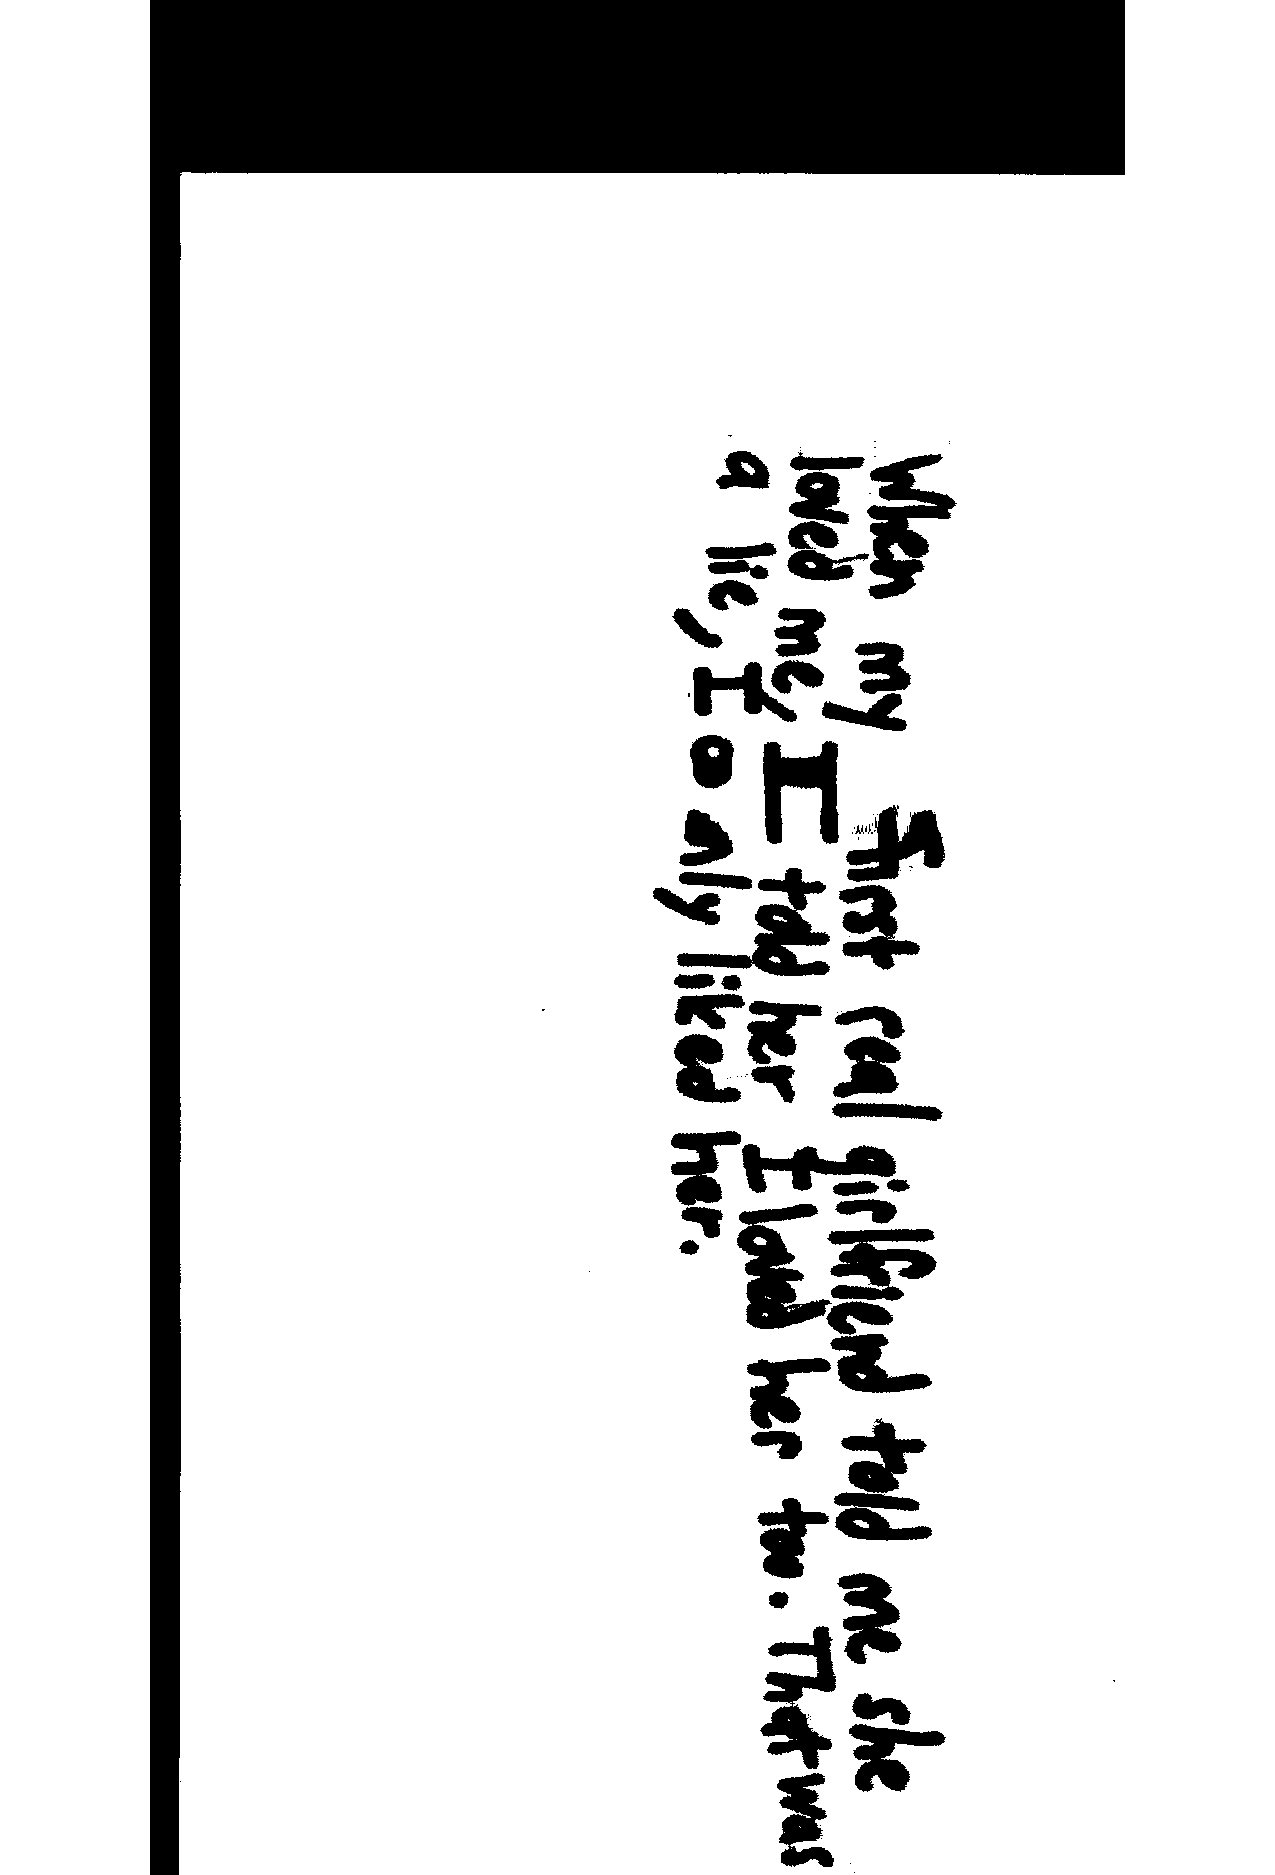 When my first real girlfriend told me she
loved me, I told her I loved her too. That was
a lie, I only liked her.